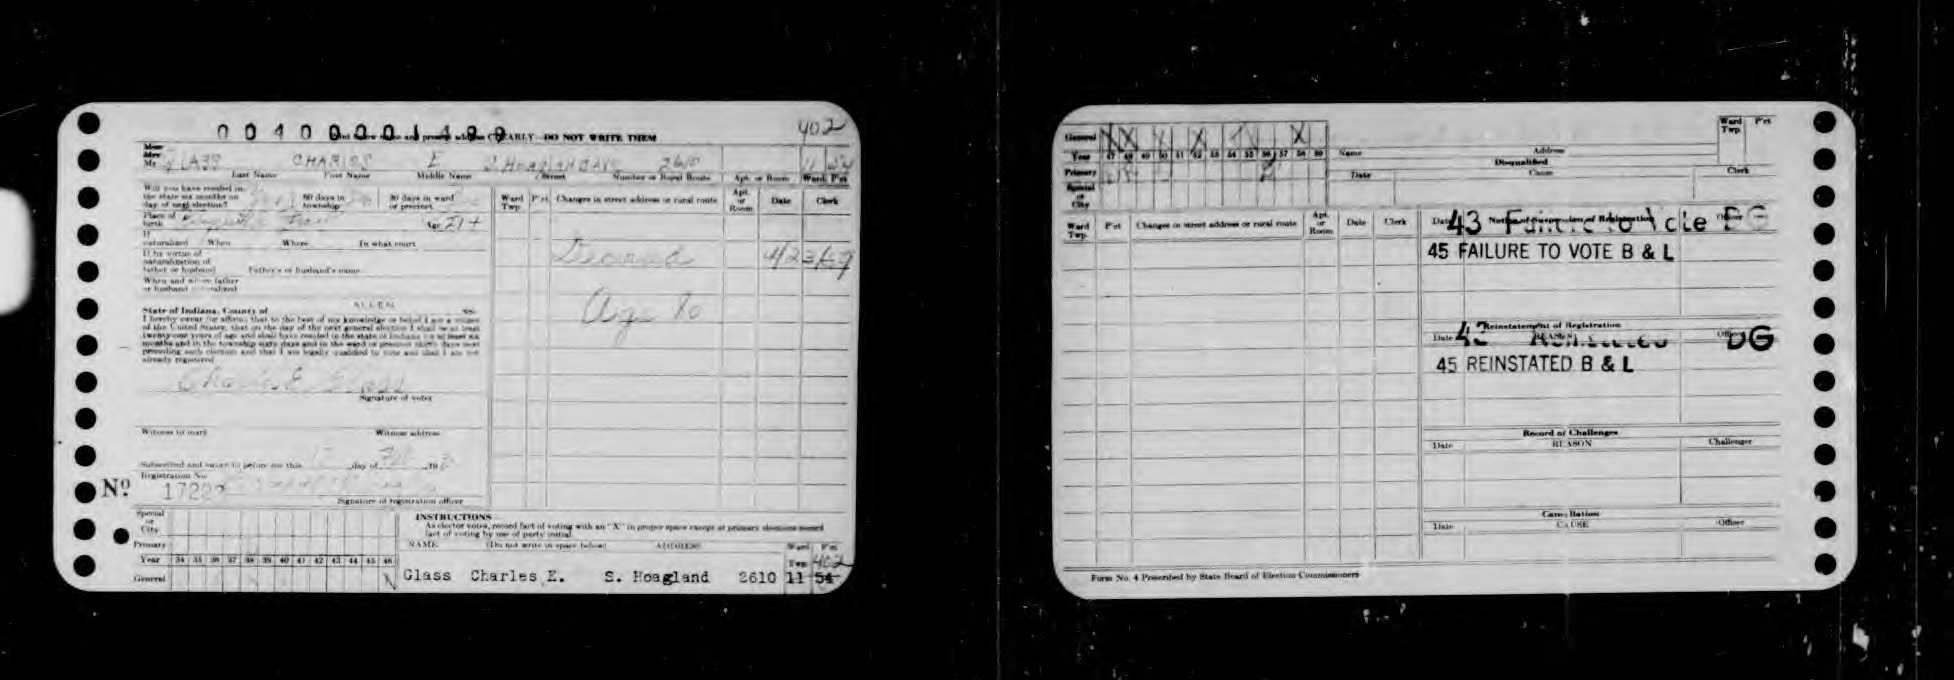 0040000 1499
Print below name and present address CLEARLY—DO NOT WRITE THEM
402
Miss
Mrs
Mr GLASS CHARLES E S. HOAGLAND AVE 2610 11 54
Last Name First Name Middle Name Street Number or Rural Route Apt. or Room Ward P'ct
Will you have resided in
the state six months on
day of next election? 60 days in township 30 days in ward or precinct
Place of birth Age 21+
If naturalized When Where In what court
If by virtue of
naturalization of
father or husband Father's or husband's name
When and where father
or husband naturalized
ALLEN
State of Indiana, County of SS:
I hereby swear (or affirm) that to the best of my knowledge or belief I am a citizen
of the United States, that on the day of the next general election I shall be at least
twenty-one years of age and shall have resided in the state of Indiana for at least six
months and in the township sixty days and in the ward or precinct thirty days next
preceding such election and that I am legally qualified to vote and that I am not
already registered
Charles E Glass
Signature of voter
Witness to mark Witness address
Subscribed and sworn to before me this day of 193
Registration No.
No 17222
Signature of registration officer
Ward Twp. P'ct Changes in street address or rural route Apt. or Room Date Clerk
Deceased 4/23/59
Age 80
Special or City
Primary
Year 34 35 36 37 38 39 40 41 42 43 44 45 46
General X
INSTRUCTIONS
As elector votes, record fact of voting with an "X" in proper space except at primary elections record
fact of voting by use of party initial.
NAME (Do not write in space below) ADDRESS Ward Twp. P'ct
402
Glass Charles E. S. Hoagland 2610 11 54
General X X X X
Year 47 48 49 50 51 52 53 54 55 56 57 58 59
Primary
Special or City
Name Address Ward Twp. P'ct
Disqualified
Date Cause Clerk
Ward Twp. P'ct Changes in street address or rural route Apt. or Room Date Clerk
Date Notice of Suspension of Registration Officer
43 Failure to Vote DG
45 FAILURE TO VOTE B & L
Reinstatement of Registration
Date REASON Officer
43 Reinstated DG
45 REINSTATED B & L
Record of Challenges
Date REASON Challenger
Cancellation
Date CAUSE Officer
Form No. 4 Prescribed by State Board of Election Commissioners